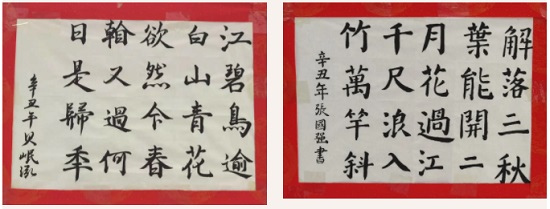 江碧鳥逾
白山青花
欲然今春
翰又過何
日是歸秊
辛丑年
解落三秋
葉能開二
月花過江
千尺浪入
竹萬竿斜
辛丑年張國强書